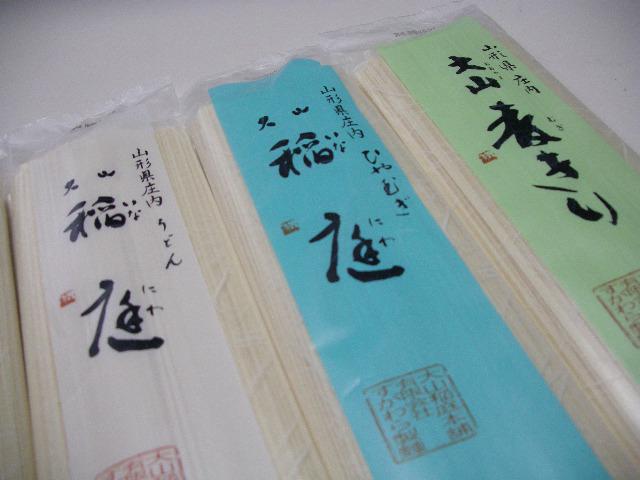 山形県庄内 うどん
大山
稲庭
いなにわ
山形県庄内 ひやむぎ
大山
稲庭
いなにわ
山形県庄内
大山 麦きり
むぎ
大山稲庭本舗
有限会社
すがわら製麺